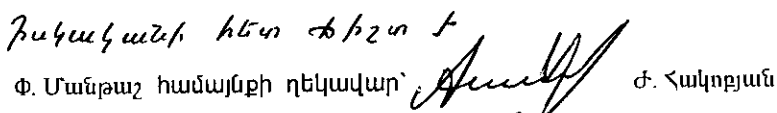 Իսկականի հետ ճիշտ է
Փ. Մանթաշ համայնքի ղեկավար՝ Ժ. Հակոբյան